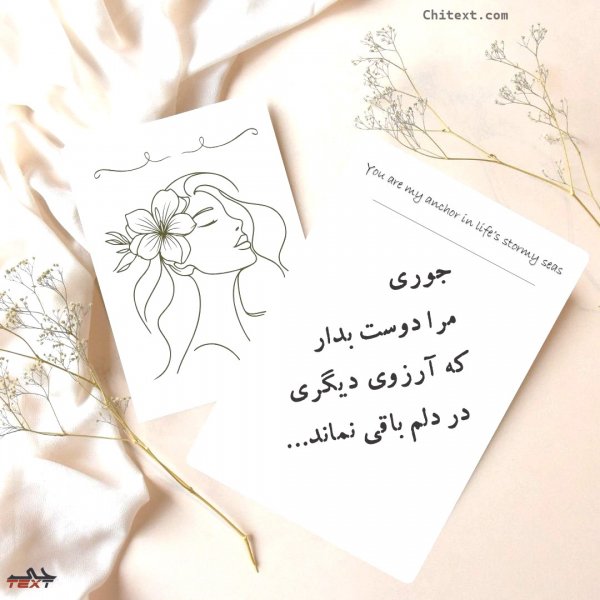 Chitext.com
You are my anchor in life's stormy seas
جوری
مرا دوست بدار
که آرزوی دیگری
در دلم باقی نماند...
TEXT